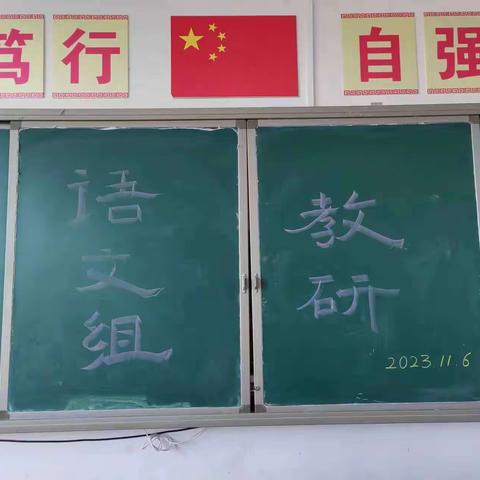 笃行
自强
语文组
教研
2023.11.6